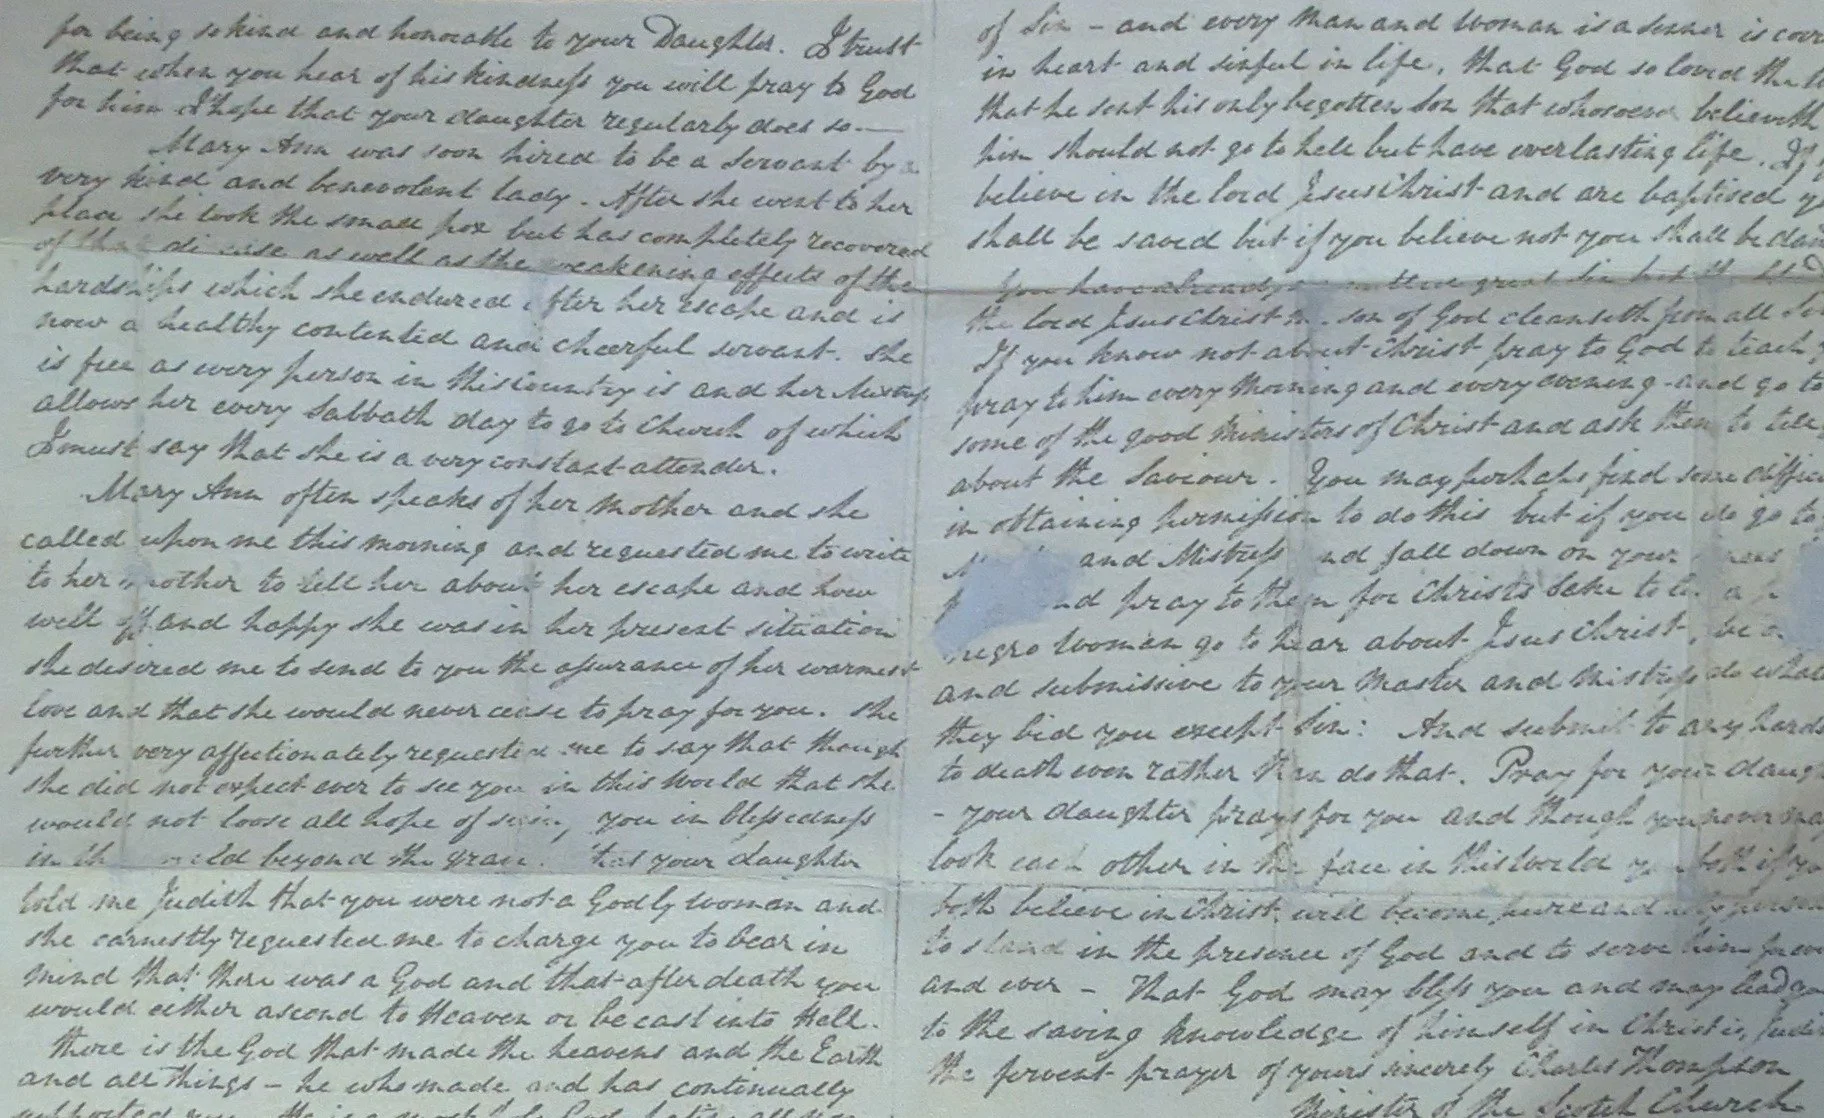 for being so kind and honorable to your Daughter. I trust
that when you hear of his kindness you will pray to God
for him I hope that your daughter regularly does so.—
Mary Ann was soon hired to be a servant by a
very kind and benevolent lady. After she went to her
place she took the small pox but has completely recovered
of that disease as well as the weakening effects of the
hardships which she endured after her escape and is
now a healthy contented and cheerful servant. She
is free as every person in this country is and her Mistress
allows her every Sabbath day to go to Church of which
I must say that she is a very constant attender.
Mary Ann often speaks of her mother and she
called upon me this morning and requested me to write
to her mother to tell her about her escape and how
well off and happy she was in her present situation
she desired me to send to you the assurance of her warmest
love and that she would never cease to pray for you. She
further very affectionately requested me to say that though
she did not expect ever to see you in this world that she
would not loose all hope of seeing you in blessedness
in the world beyond the grave. your daughter
told me Judith that you were not a Godly woman and
she earnestly requested me to charge you to bear in
mind that there was a God and that after death you
would either ascend to Heaven or be cast into Hell.
There is the God that made the heavens and the Earth
and all things – he who made and has continually
supported you. He is a God
of Sin – and every man and woman is a sinner is
in heart and sinful in life, that God so loved the
that he sent his only begotten Son that whosoever believeth
him should not go to hell but have everlasting life. If
believe in the lord Jesus Christ and are baptised
shall be saved but if you believe not you shall be
You have already great sin but the
the lord Jesus Christ son of God cleanseth from all
If you know not about Christ pray to God to teach
pray to him every morning and every evening – and go to
some of the good Ministers of Christ and ask them to
about the Saviour. You may perhaps find some
in obtaining permission to do this but if you do go to
and Mistress and fall down on your knees
and pray to them for Christs sake to a
negro woman go to hear about Jesus Christ, be
and submissive to your Master and Mistress do what
they bid you except Sin: And submit to any
to death even rather than do that. Pray for your
– your daughter prays for you and though you never
look each other in the face in this world you both if
both believe in Christ, will become pure and
to stand in the presence of God and to serve him
and ever – That God may bless you and may lead
to the saving knowledge of himself in Christ is,
the fervent prayer of yours sincerely Charles Thompson
Minister of the Scotch Church